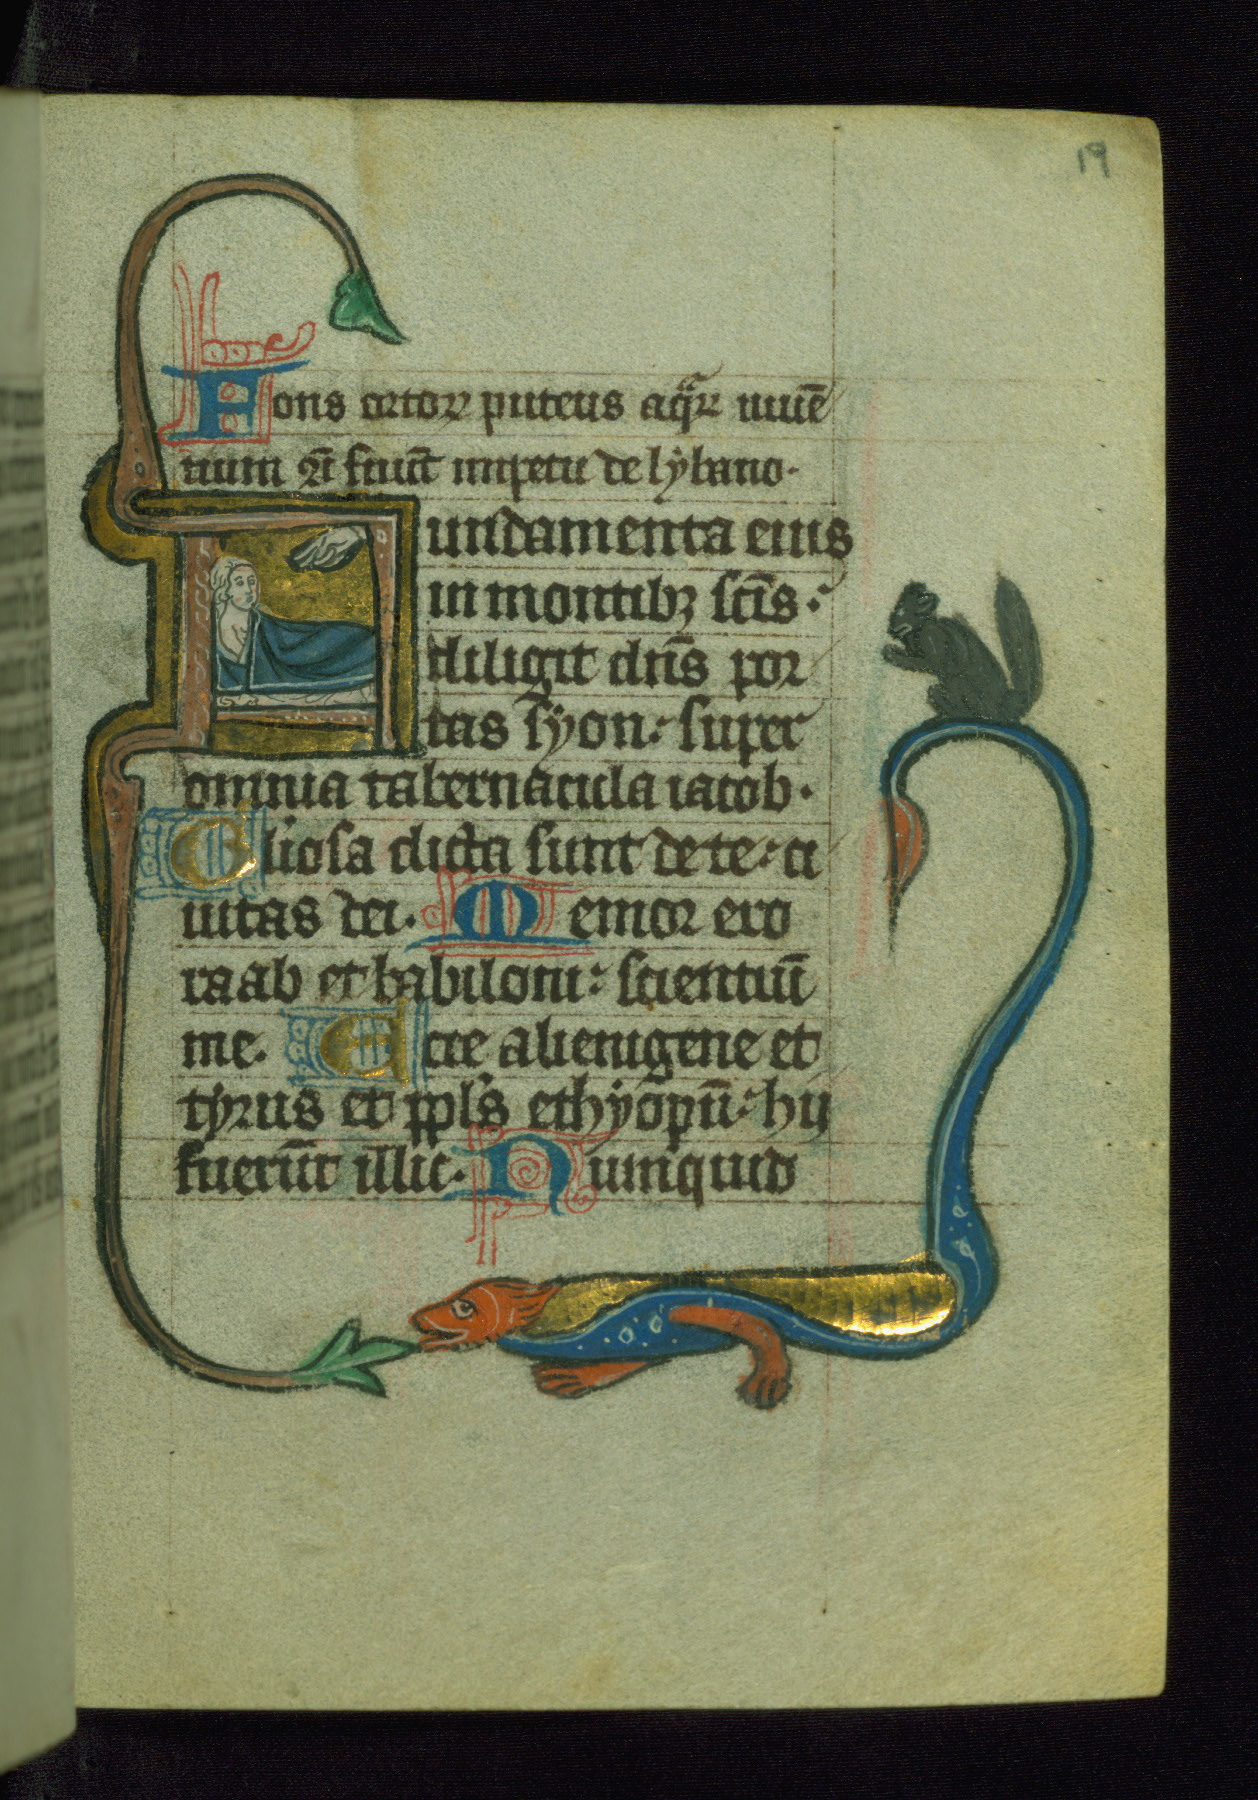 19
Fons ortoꝝ puteus aqͣꝝ uiuē
tium q̄ fluūt impetu de lybano.
undamenta eius
in montibꝫ scīs.
diligit dn̄s por
tas syon: super
omnia tabernacula iacob.
Gliosa dicta sunt de te: ci
uitas dei. Memor ero
raab et babiloni: scientiū
me. Ecce alienigene et
tyrus et ppl̓s ethyopū: hij
fuerūt illic. Nunquid